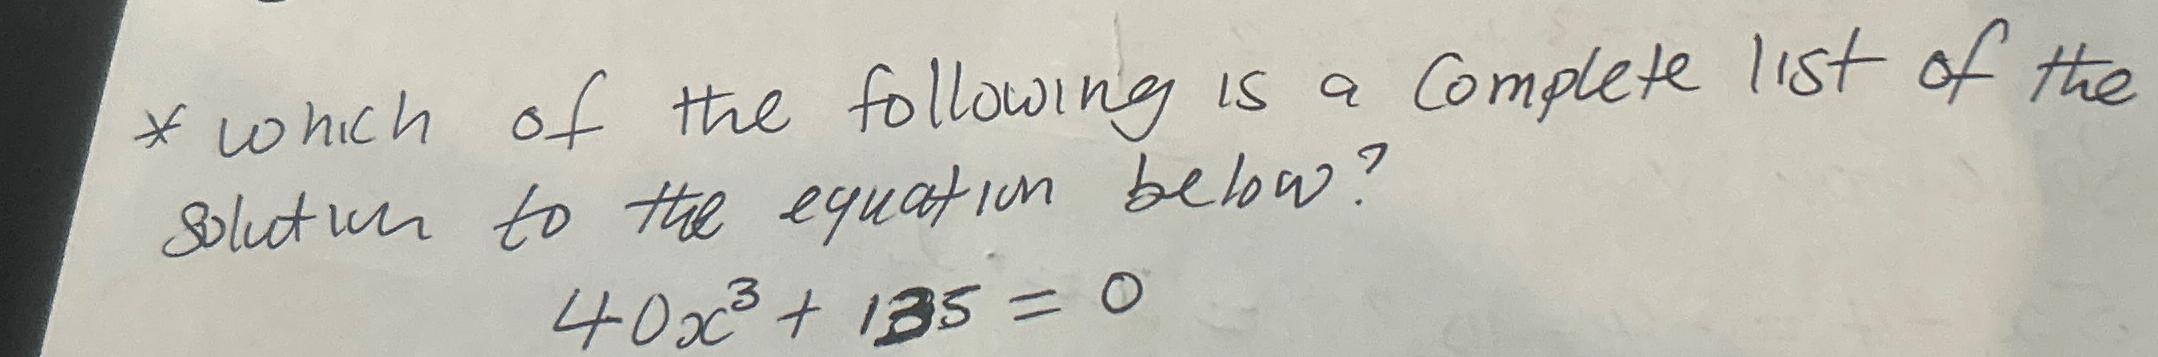 * which of the following is a complete list of the
solution to the equation below?
40x³ + 135 = 0